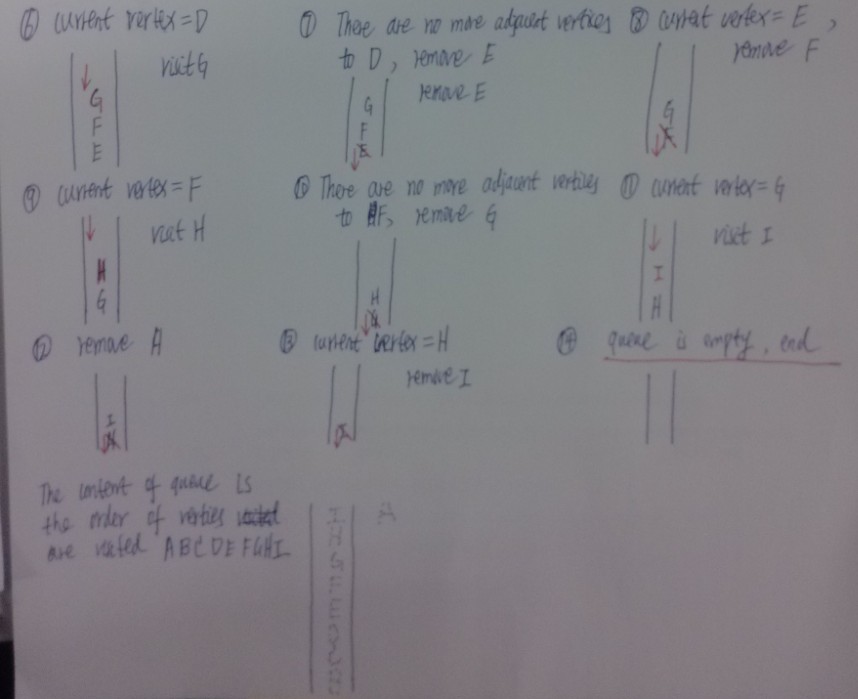 ⑥ current vertex = D
visit G
G
F
E
⑦ There are no more adjacent verties
to D, remove E
remove E
G
F
E
⑧ current vertex = E,
remove F
G
F
⑨ current vertex = F
visit H
H
G
⑩ There are no more adjacent verties
to F, remove G
H
G
⑪ current vertex = G
visit I
I
H
⑫ remove A
I
H
⑬ current vertex = H
remove I
I
⑭ queue is empty, end
The content of queue is
the order of verties
are visited ABCDEFGHI